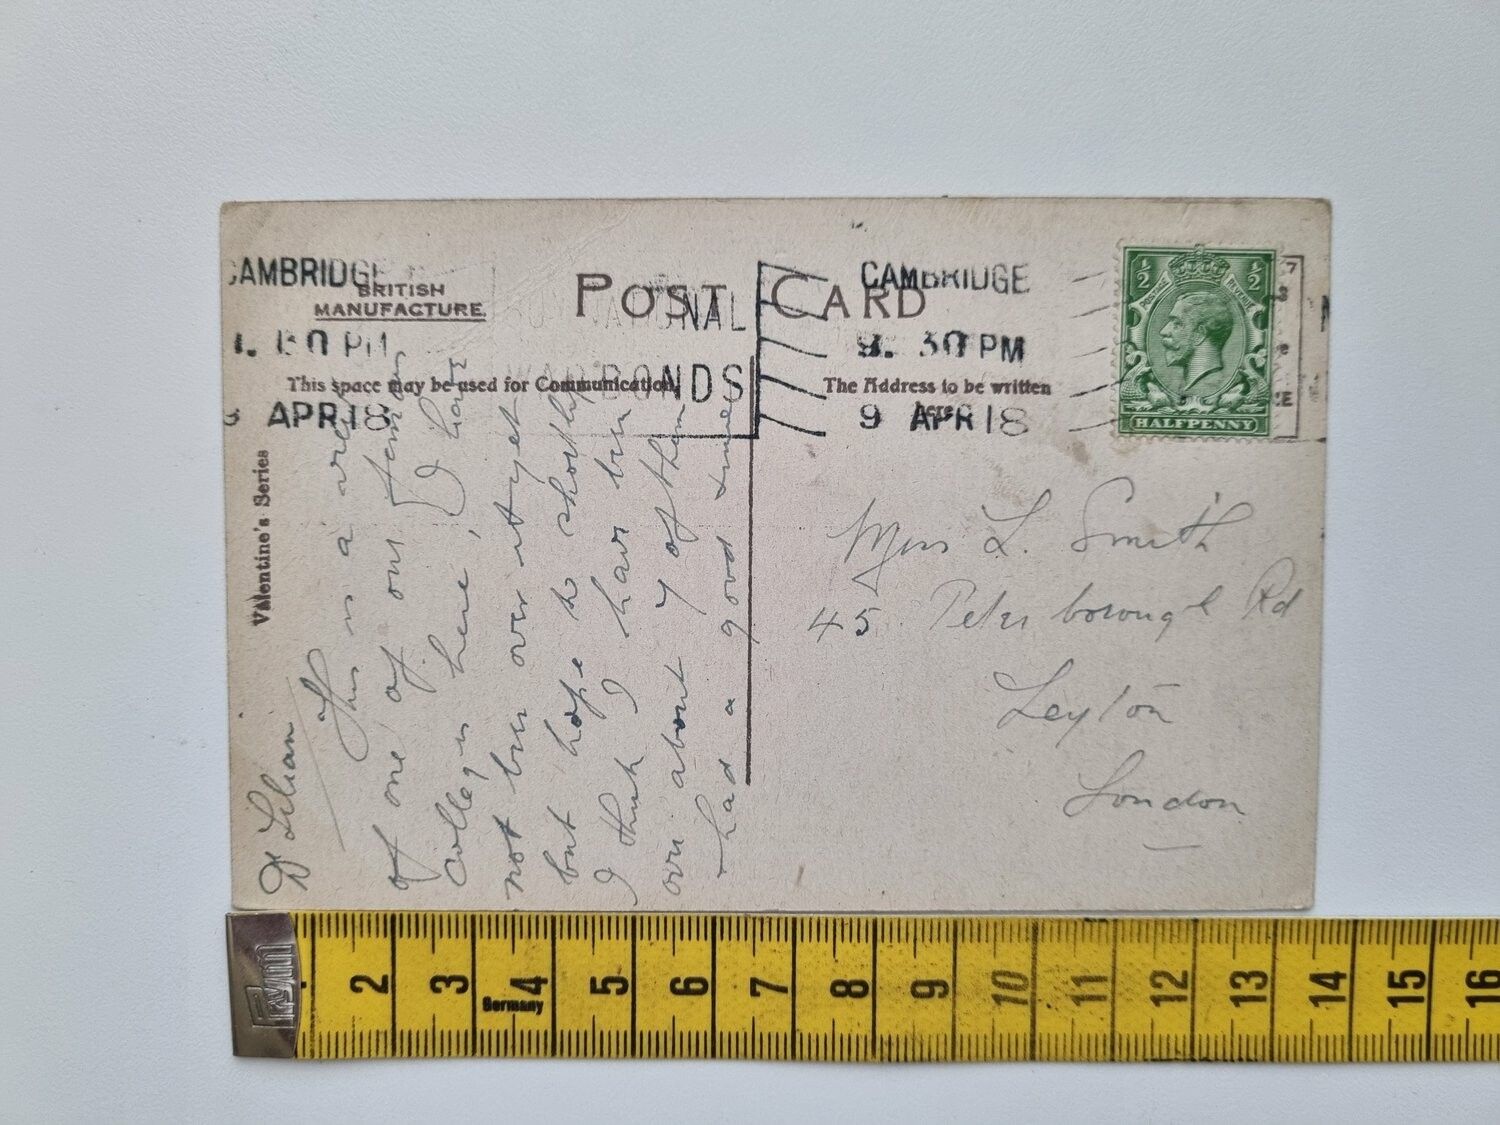 CAMBRIDGE
BRITISH
MANUFACTURE.
POST CARD
NATIONAL
WAR BONDS
PM
APR 18
CAMBRIDGE
9. 30 PM
9 APR 18
This space may be used for Communication.
The Address to be written
here.
½ ½
POSTAGE REVENUE
HALFPENNY
Valentine's Series
Dr Lilian
This is a view
of one of our famous
Colleges here, I have
not been over it yet
but hope to shortly
I think I have been
over about 7 of them
had a good time
Miss L. Smith
45 Peterborough Rd
Leyton
London
Prym
Germany
2 3 4 5 6 7 8 9 10 11 12 13 14 15 16